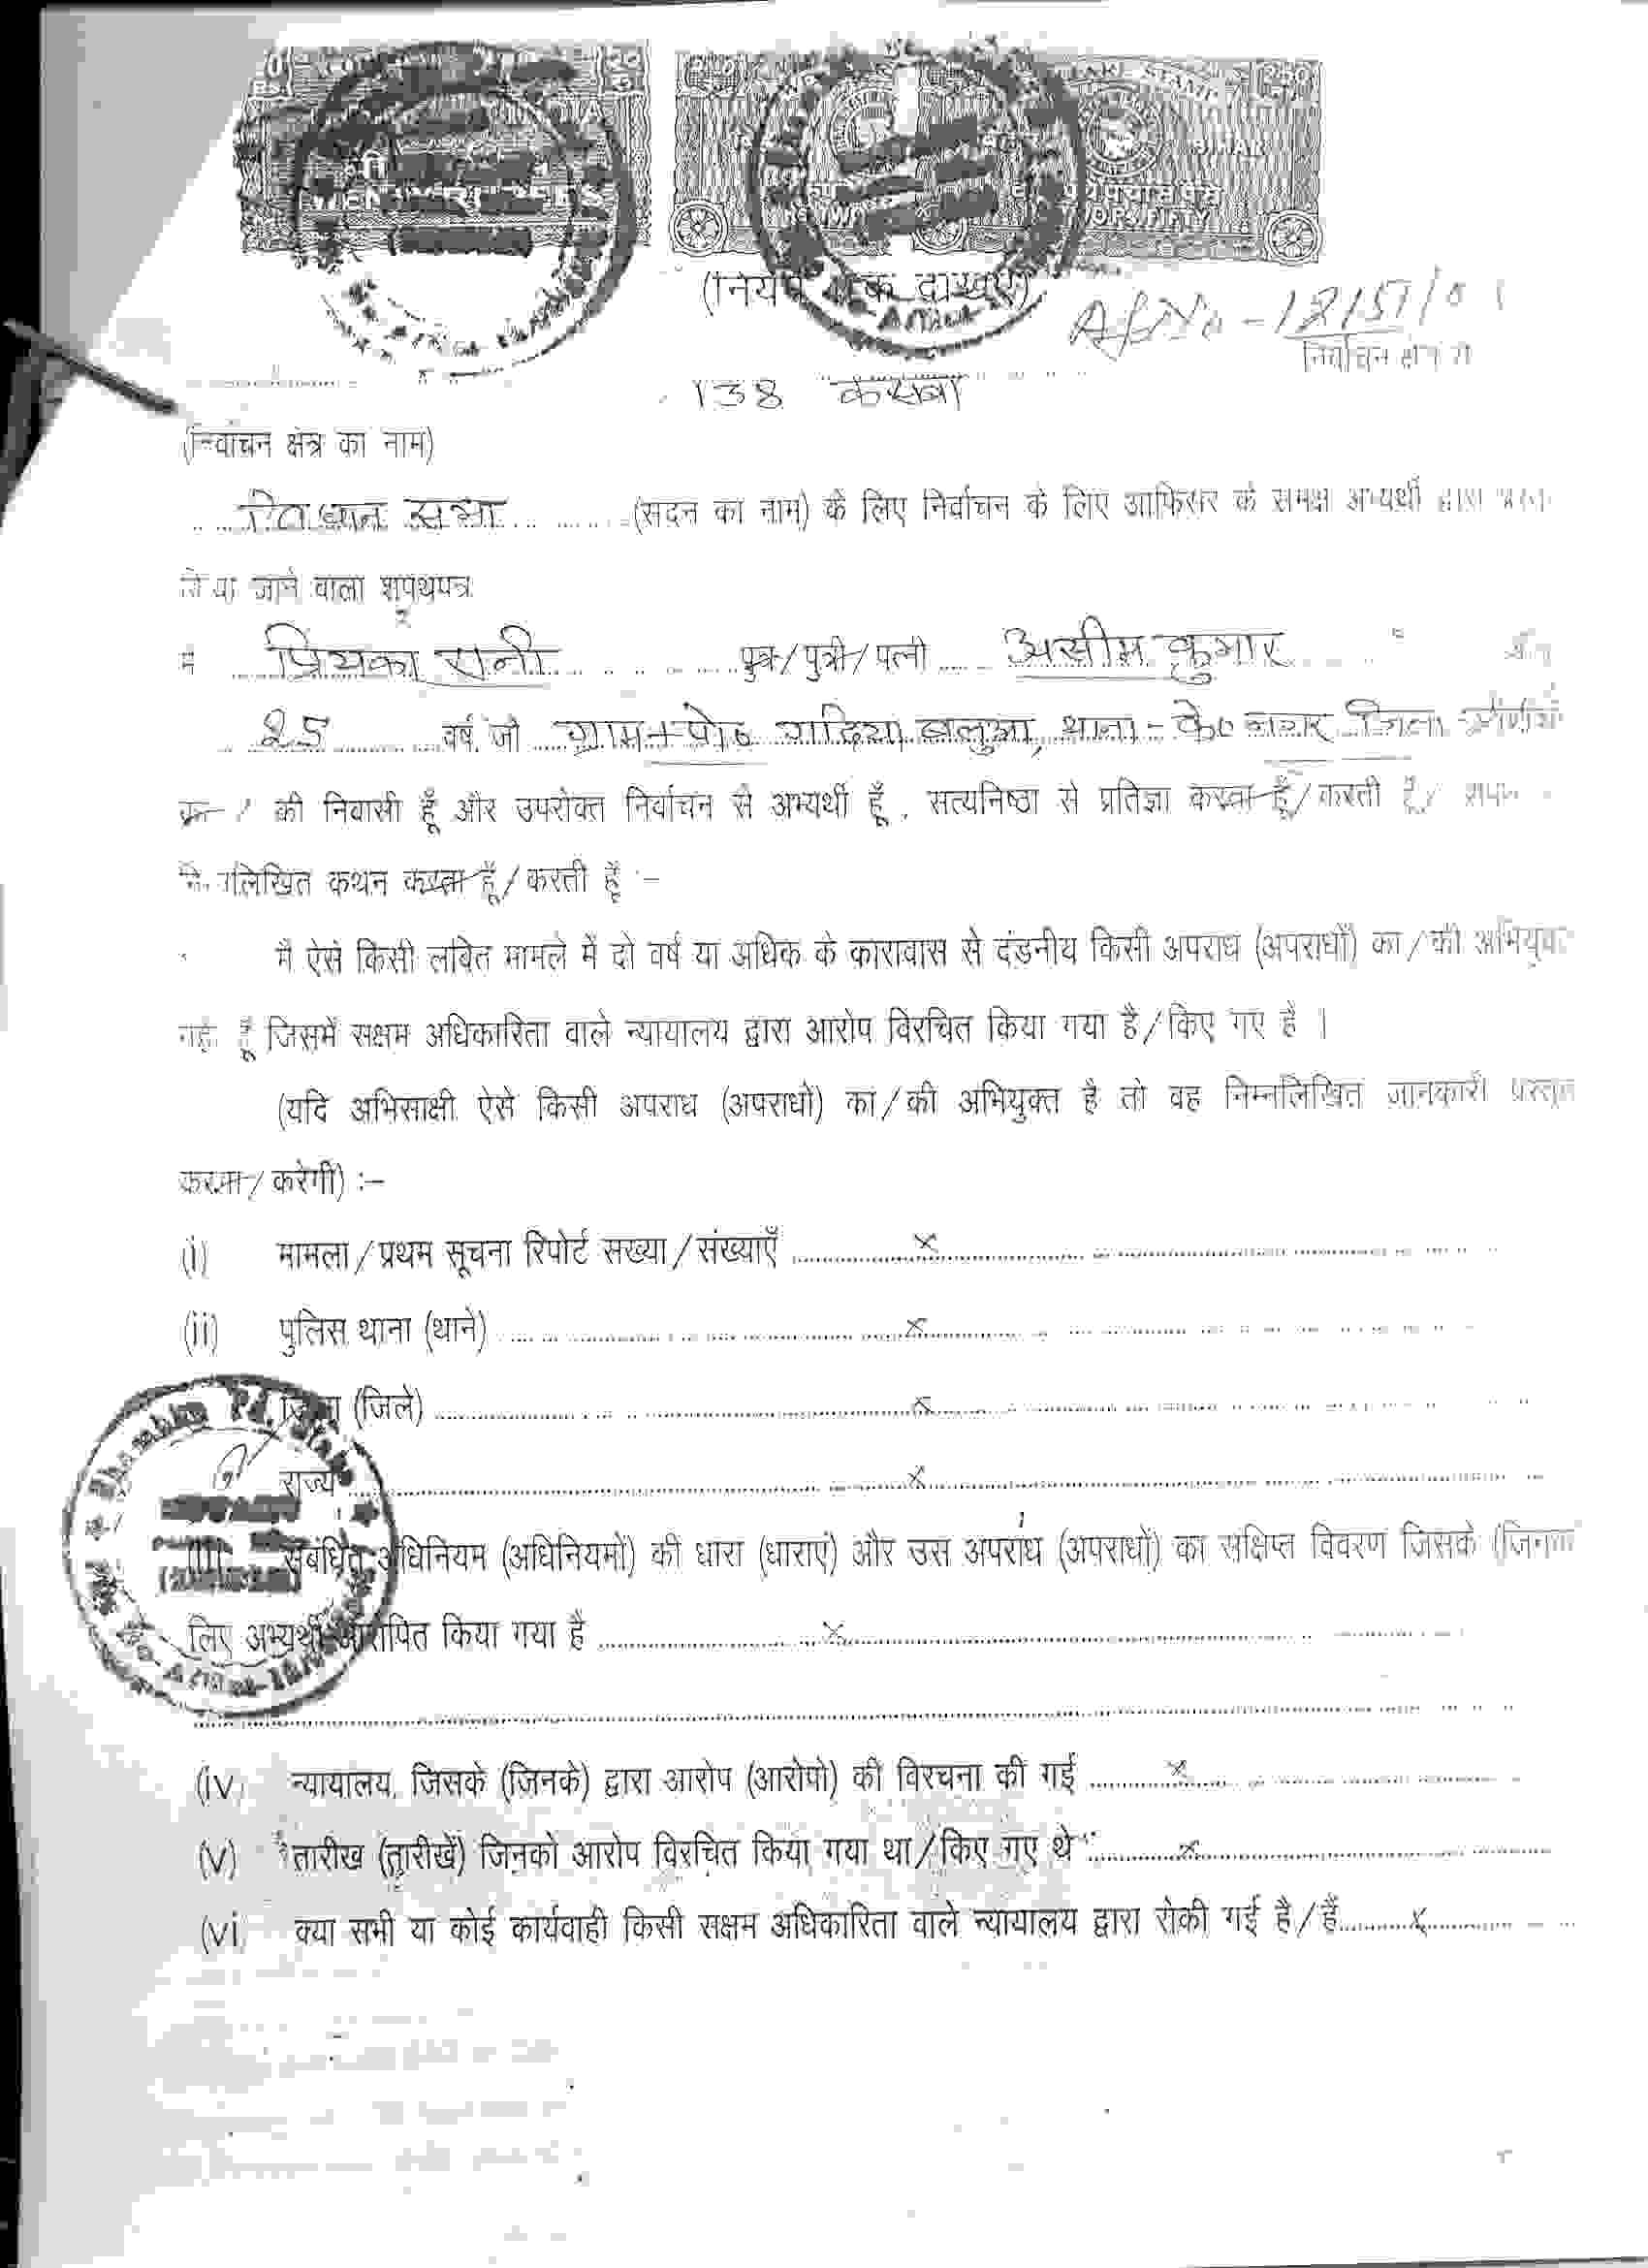 BIHAR
(नियम क दाखए)
निर्वाचन क्षेत्र से
138 कसबा
(निर्वाचन क्षेत्र का नाम)
विधान सभा (सदन का नाम) के लिए निर्वाचन के लिए आफिसर के समक्ष अभ्यर्थी द्वारा
जाने वाला शपथपत्र
मै प्रियंका रानी पुत्र/पुत्री/पत्नी असीम कुमार
25 वर्ष, जो ग्राम+पो० गादिया बलुआ, थाना-के० नगर जिला
की निवासी हूँ और उपरोक्त निर्वाचन से अभ्यर्थी हूँ, सत्यनिष्ठा से प्रतिज्ञा करता हूँ/करती हूँ/ शपथ
कथन करता हूँ/करती हूँ :-
मै ऐसे किसी लबित मामले में दो वर्ष या अधिक के कारावास से दंडनीय किसी अपराध (अपराधों) का/की अभियुक्त
नही हूँ जिसमें सक्षम अधिकारिता वाले न्यायालय द्वारा आरोप विरचित किया गया है/किए गए है।
(यदि अभिसाक्षी ऐसे किसी अपराध (अपराधों) का/की अभियुक्त है तो वह निम्नलिखित जानकारी प्रस्तुत
करेगा/करेगी) :-
(i) मामला/प्रथम सूचना रिपोर्ट सख्या/संख्याएँ x
(ii) पुलिस थाना (थाने) x
जिला (जिले) x
राज्य x
(iii) संबंधित अधिनियम (अधिनियमों) की धारा (धाराएं) और उस अपराध (अपराधों) का सक्षिप्त विवरण जिसके (जिनके
लिए अभ्यर्थी आरोपित किया गया है x
(iv) न्यायालय, जिसके (जिनके) द्वारा आरोप (आरोपो) की विरचना की गई x
(v) तारीख (तारीखें) जिनको आरोप विरचित किया गया था/किए गए थे x
(vi) क्या सभी या कोई कार्यवाही किसी सक्षम अधिकारिता वाले न्यायालय द्वारा रोकी गई है/हैं x